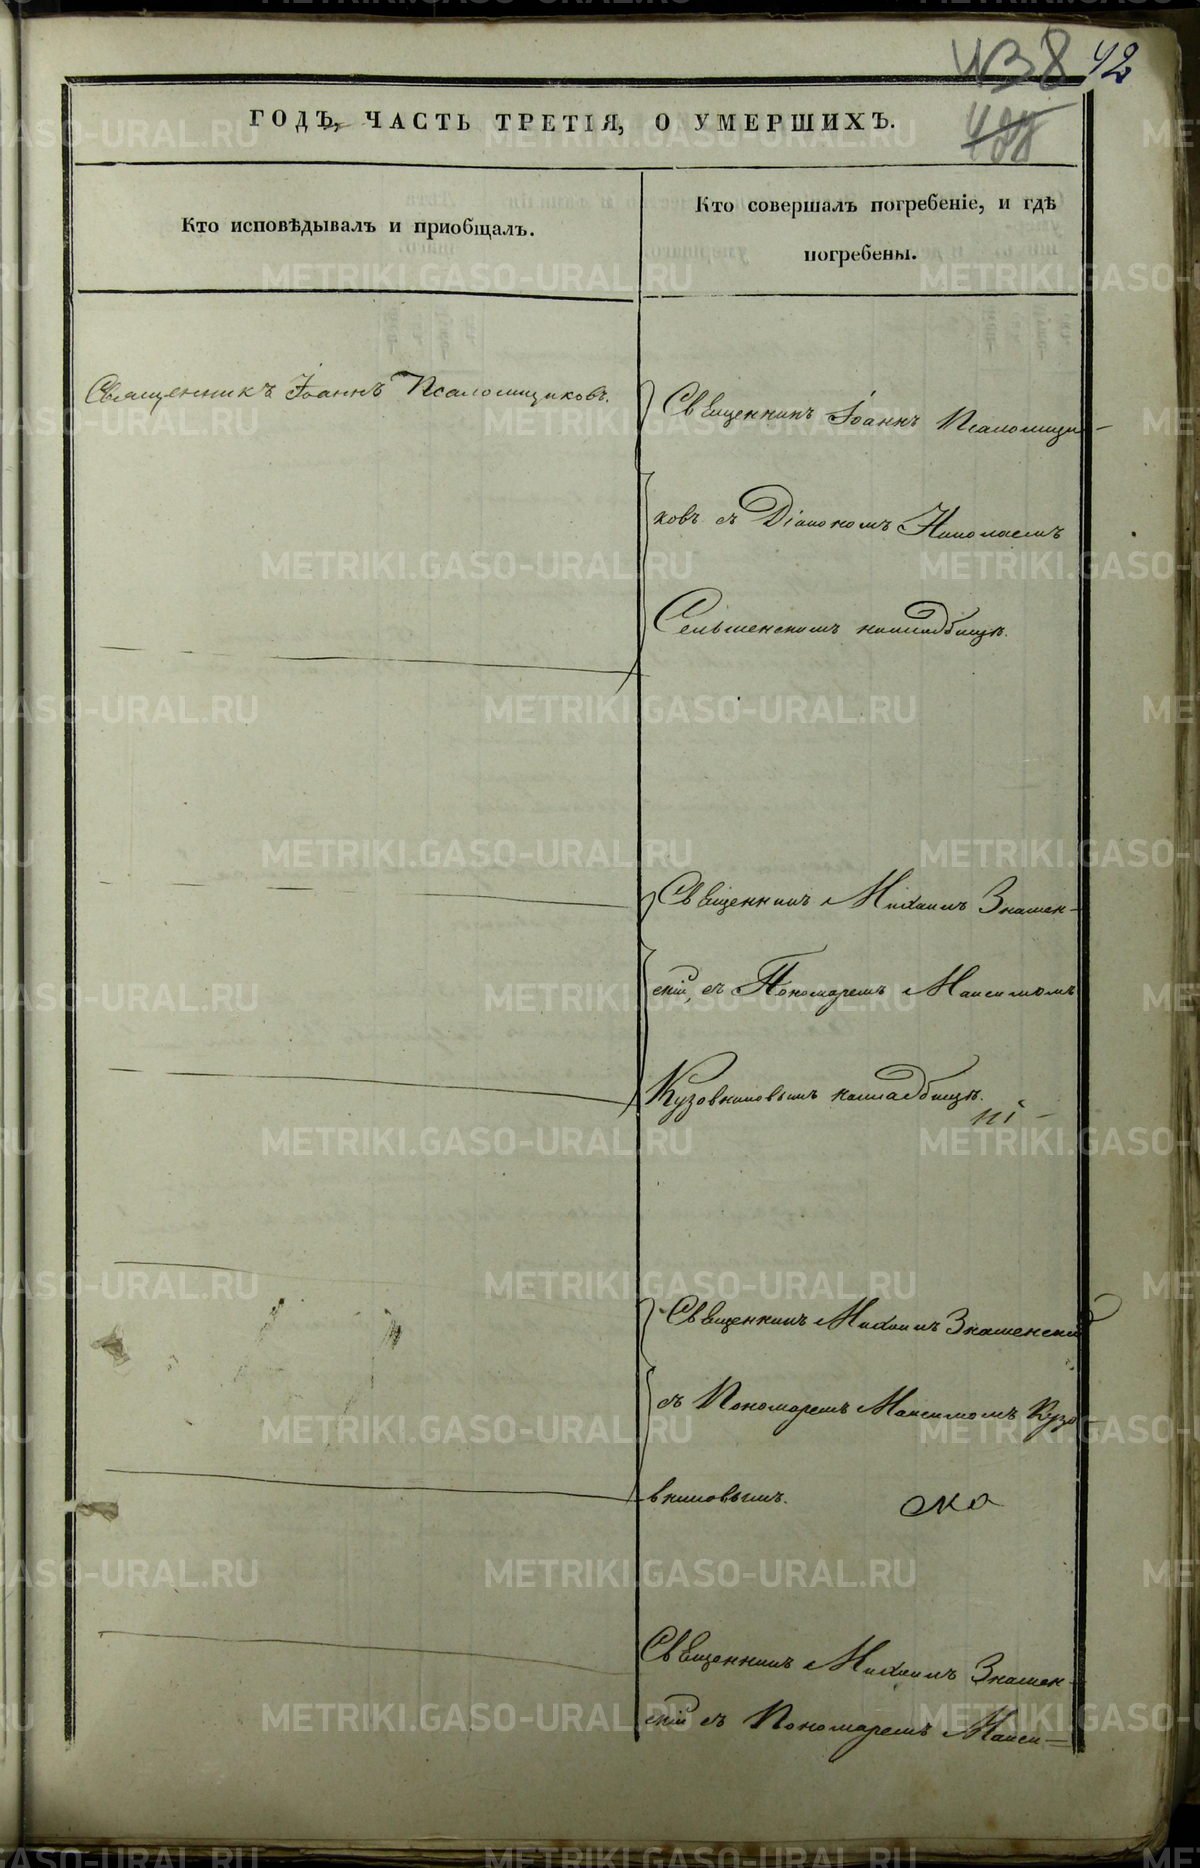 438 42
488
ГОДЪ, ЧАСТЬ ТРЕТІЯ, О УМЕРШИХЪ.
Кто исповѣдывалъ и приобщалъ.
Кто совершалъ погребеніе, и гдѣ
погребены.
Священникъ Іоаннъ Псаломщиковъ.
Священникъ Іоаннъ Псаломщи-
ковъ съ Діакономъ Николаемъ
кладбищѣ.
Священникъ Михаилъ Знамен-
скій, съ Пономаремъ Максимомъ
Кузовниковымъ кладбищѣ.
Священникъ Михаилъ Знаменскій
съ Пономаремъ Максимомъ Кузо-
вниковымъ.
Священникъ Михаилъ Знамен-
скій съ Пономаремъ Макси=
METRIKI.GASO-URAL.RU